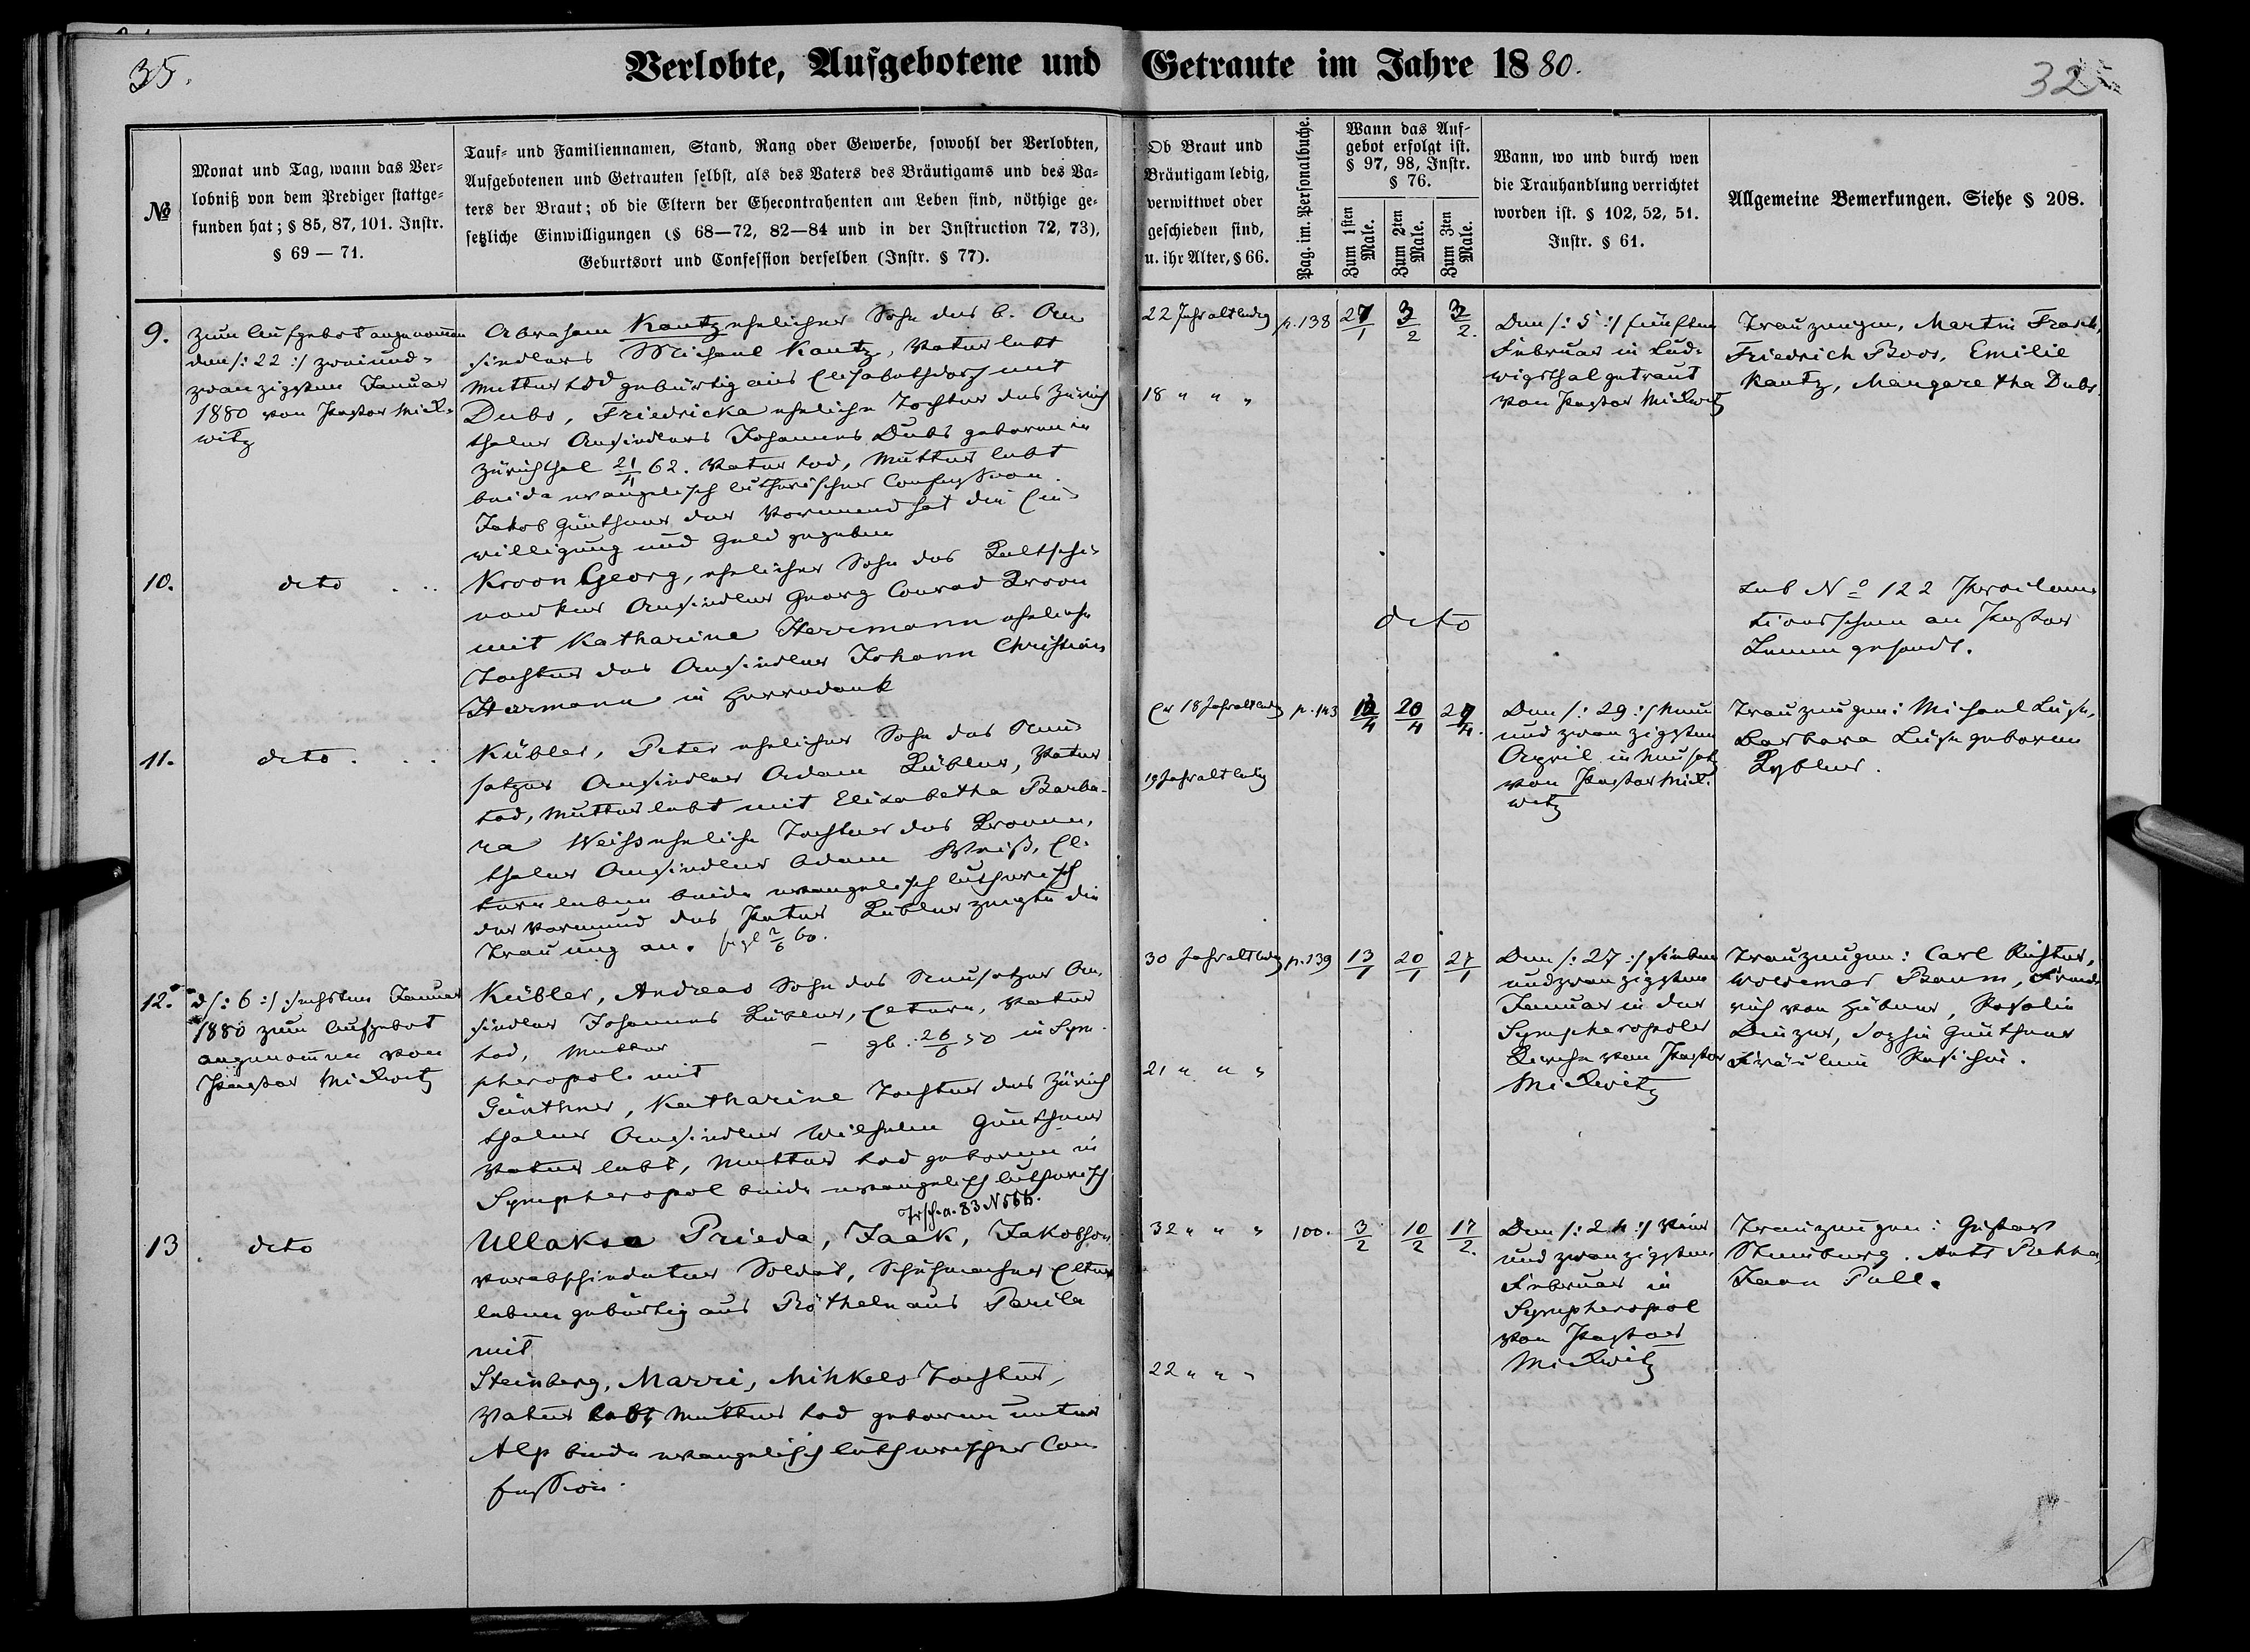 35.
Verlobte, Aufgebotene und Getraute im Jahre 1880.
32
№
Monat und Tag, wann das Ver-
lobniß von dem Prediger stattge-
funden hat; § 85, 87, 101. Instr.
§ 69 — 71.
Tauf- und Familiennamen, Stand, Rang oder Gewerbe, sowohl der Verlobten,
Aufgebotenen und Getrauten selbst, als des Vaters des Bräutigams und des Va-
ters der Braut; ob die Eltern der Ehecontrahenten am Leben sind, nöthige ge-
setzliche Einwilligungen (§ 68—72, 82—84 und in der Instruction 72, 73),
Geburtsort und Confession derselben (Instr. § 77).
Ob Braut und
Bräutigam ledig,
verwittwet oder
geschieden sind,
u. ihr Alter, § 66.
Pag. im. Personalbuche.
Wann das Auf-
gebot erfolgt ist.
§ 97, 98, Instr.
§ 76.
Zum 1sten
Male.
Zum 2ten
Male.
Zum 3ten
Male.
Wann, wo und durch wen
die Trauhandlung verrichtet
worden ist. § 102, 52, 51.
Instr. § 61.
Allgemeine Bemerkungen. Siehe § 208.
9.
Zum Aufgebot angenommen
den /: 22 :/ zweiund-
zwanzigsten Januar
1880 von Pastor Mick-
witz
Abraham Kautz ehelicher Sohn des An
siedlers Michael Kautz, Vater lebt
Mutter todt gebürtig aus Elisabethdorf mit
Dubs, Friedricka eheliche Tochter des Zürich
thaler Ansiedlers Johannes Dubs geboren in
Zürichthal 21/4 62. Vater tod, Mutter lebt
beide evangelisch lutherischer Confession.
Jakob Günthner der Vormund hat die Ein
willigung und Geld gegeben
22 Jahr alt ledig
18 " " "
p. 138
27/1
3/2
3/2.
Den /: 5 :/ fünften
Februar in Lud-
wigsthal getraut
von Pastor Mickwitz
Trauzeugen, Martin Frasch,
Friedrich Boos, Emilie
Kautz, Margaretha Dubs
10.
deto
Kroon Georg, ehelicher Sohn des Kaltschi-
nowker Ansiedlers Georg Conrad Kroon
mit Katharine Herrmann eheliche
Tochter des Ansiedlers Johann Christian
Herrmann in Herrndank
deto
sub No 122 Proclama
tionsschein an Pastor
gesandt.
11.
deto
Kübler, Peter ehelicher Sohn des Neu
satzer Ansiedlers Adam Kübler, Vater
tod, Mutter lebt mit Elisabetha Barba-
ra Weiss eheliche Tochter des Kronen,
thaler Ansiedlers Adam Weiß, El-
tern leben beide evangelisch lutherisch
der Vormund des Peter Kübler zeigte die
Trauung an.
Er 18 Jahr alt ledig
19 Jahr alt ledig
p. 143
20/4
27/4.
Den /: 29 :/ neun
und zwanzigsten
April in Neusatz
von Pastor Mick-
witz
Trauzeugen: Michael
Barbara geborene
Kybler.
12.
d /: 6 :/ sechsten Januar
1880 zum Aufgebot
angenommen von
Pastor Mickwitz
Kübler, Andreas Sohn des Neusatzer An-
siedlers Johannes Kübler, Eltern, Vater
tod, Mutter – gb. 26/6 50 in Sym-
pheropol mit
Günthner, Katharine Tochter des Zürich
thaler Ansiedlers Wilhelm Günthner
Vater lebt, Mutter tod geboren in
Sympheropol beide evangelisch lutherisch
30 Jahr alt ledig
21 " " "
p. 139
13/1
20/1
27/1
Den /: 27 :/ sieben
undzwanzigsten
Januar in der
Sympheropoler
Kirche von Pastor
Mickwitz
Trauzeugen: Carl Richter,
Woldemar Baum, Fried-
rich von Hübner, Rosalie
Sophie Günthner
Fräulein
13
deto
Ullaksa Prieda, Jaak, Jakobson,
verabschiedeter Soldat, Schuhmacher Eltern
leben gebürtig aus Rötheln aus Parila
mit
Steinberg, Marri, Mihkels Tochter,
Vater lebt, Mutter tod geboren unter
Alp beide evangelisch lutherischer Con
fession.
32 " " "
22 " " "
100.
3/2
10/2
17/2.
Den /: 24 :/ vier
und zwanzigsten
Februar in
Sympheropol
von Pastor
Mickwitz
Trauzeugen: Gustav
Jaan Pall.